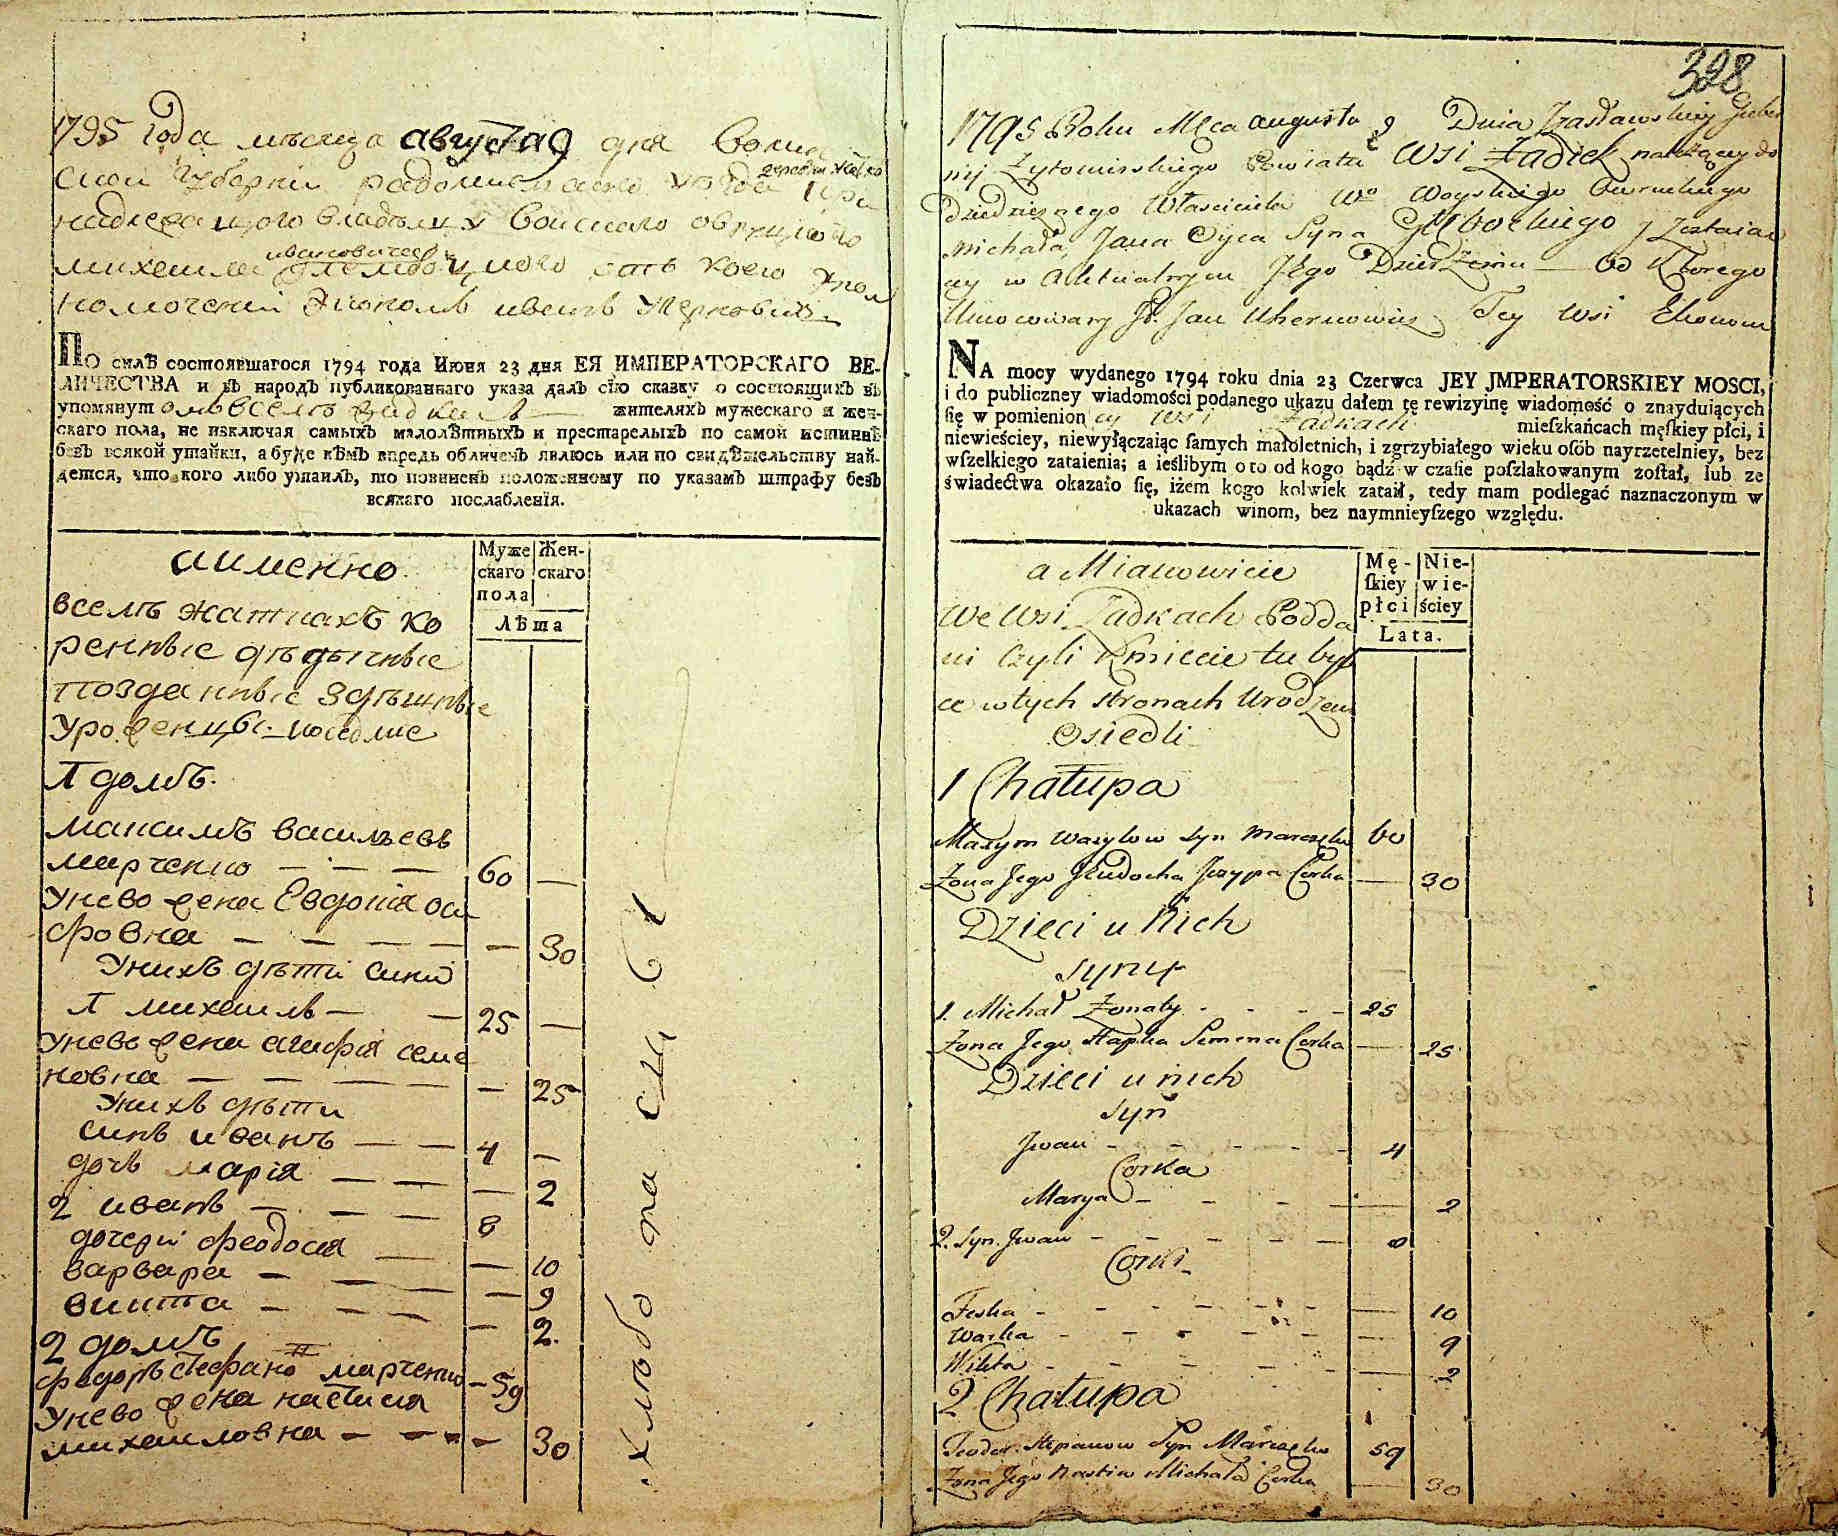 1795 года мѣсяца августа 9 дня Волин
ской Губернїи радомисльского уезда
надлежащого владѣлцу войского овруцкого
ивановичеви
михаила
номоченїй Экономъ иванъ
ПО силѣ состоявшагося 1794 года Июня 23 дня ЕЯ ИМПЕРАТОРСКАГО ВЕ-
ЛИЧЕСТВА и въ народъ публикованнаго указа далъ сїю сказку о состоящихъ въ
упомянутомъ селѣ жителяхъ мужескаго и жен-
скаго пола, не изключая самыхъ малолѣтныхъ и престарелыхъ по самой истиннѣ
безъ всякой утайки, а буде кѣмъ впредь обличенъ явлюсь или по свидѣтельству най-
дется, что кого либо утаилъ, то повиненъ положенному по указамъ штрафу безъ
всякаго послабленїя.
аименно
Муже
скаго
пола
Жен-
скаго
Лѣта
всемъ жаткахъ ко
ренные дѣдычные
подданные здѣшные
уроженцы
1 домъ.
максимъ васильевъ
марченко — — — 60 —
унево жена Евдокїя оси
фовна — — — — — 30
унихъ дѣти сини
1 михаилъ — — 25 —
унево жена агафїя семе
новна — — — — — 25
унихъ дѣти
синъ иванъ — — 4 —
дочъ марїя — — — — 2
2 иванъ — — — 8
дочери феодосїя — — 10
варвара — — — — 9
викта — — — — 2.
2 домъ
федоръ стефано марченко — 59
унево жена настасїя
михаиловна — — — — 30
328
1795 Roku Mca augusta 9 Dnia Zasławskiey Guber
nij Żytomirskiego Powiatu Wsi Żadek należącey do
Dziedzicznego Właściciela Wo Woyskiego Owruckiego
Michała, Jana Oyca Syna
cey w Aktualnym Jego Dzierżeniu — Od Ktorego
Umocowany Jan Tey Wsi Ekonom
NA mocy wydanego 1794 roku dnia 23 Czerwca JEY JMPERATORSKIEY MOSCI,
i do publiczney wiadomości podanego ukazu dałem tę rewizyinę wiadomość o znayduiących
się w pomienioney wsi Żadkach mieſzkańcach męſkiey płci, i
niewieściey, niewyłączaiąc ſamych małoletnich, i zgrzybiałego wieku oſób nayrzetelniey, bez
wſzelkiego zataienia; a ieślibym o to od kogo bądź w czaſie poſzlakowanym zoſtał, lub ze
świadectwa okazało ſię, iżem kogo kolwiek zataił, tedy mam podlegać naznaczonym w
ukazach winom, bez naymnieyſzego względu.
a Mianowicie
Mę-
ſkiey
płci
Nie-
wie-
ściey
Lata.
We Wsi Żadkach Podda
ni Czyli Kmiecie tu byli
ce w tych stronach Urodzeni
Osiedli
1 Chałupa
Maxym Wasylow Syn Marczęko 60
Żona Jego Jewdocha Jozypa Corka — 30
Dzieci u Nich
Syny
1. Michał Żonaty - - - - 25
Żona Jego Hapka Semena Corka — 25
Dzieci u nich
Syn
Jwan - - - - - 4
Corka
Marya - - - — 2
2. Syn. Jwan - - - - - 8
Corki
Feska - - - - - — 10
Warka - - - - - — 9
Wikta - - - - - — 2
2 Chałupa
Teodor Stepanow Syn Marczęko 59
Żona Jego Nastia Michała Corka — 30